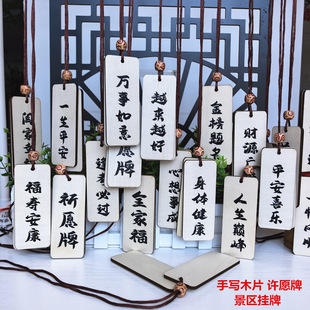 万事如意
越来越好
一生平安
金榜题名
财源广
阖家
许愿牌
逢考必过
心想事成
身体健康
平安喜乐
福寿安康
祈愿牌
全家福
人生巅峰
手写木片 许愿牌
景区挂牌